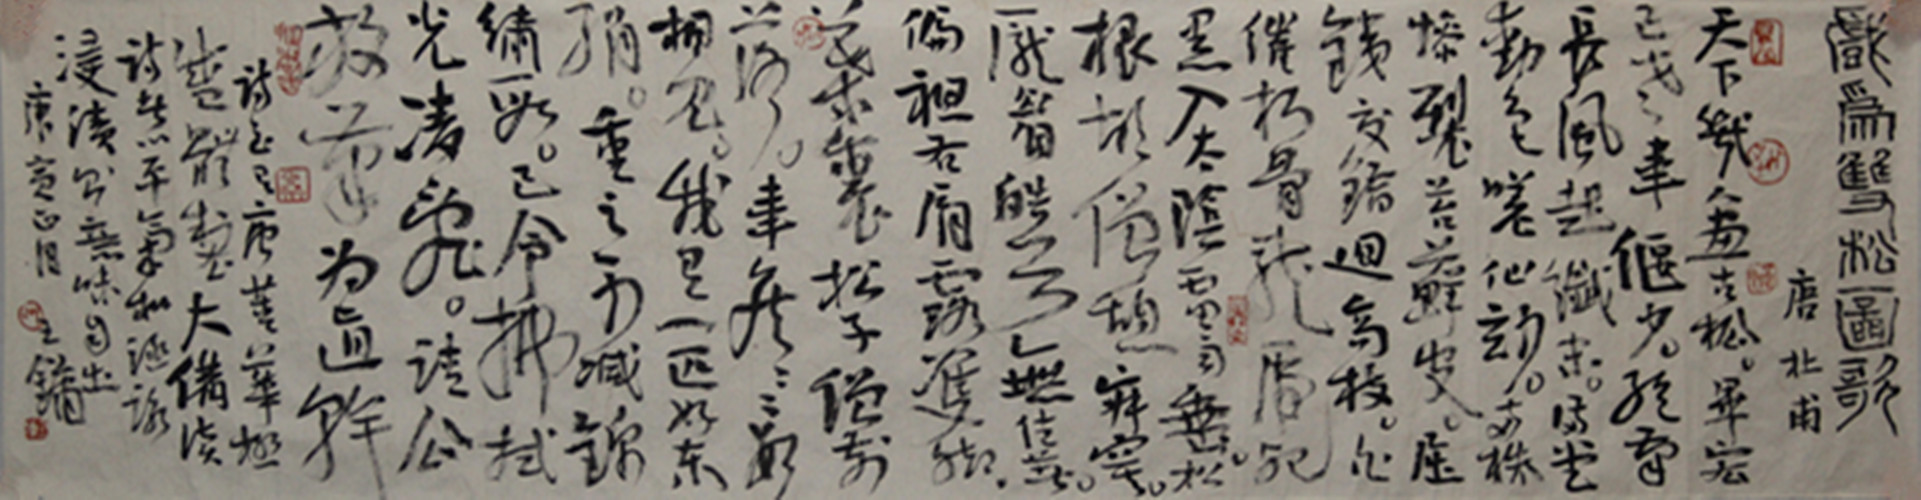 戲為雙松圖歌
唐 杜甫
天下幾人畫古松。畢宏
已老韋偃少。絕筆
長風起纖末。滿堂
動色嗟神妙。兩株
慘裂苔蘚皮。屈
鐵交錯迴高枝。白
摧朽骨龍虎死
黑入太陰雷雨垂。松
根胡僧憩寂寞。
龐眉皓首無住著。
偏袒右肩露雙腳。
葉裏松子僧前
落。韋侯〻〻數
相見。我有一匹好東
絹。重之不減錦
繡段。已令拂拭
光凌亂。請公
放筆為直幹
詩至有唐菁華極
盛體製大備讀
詩平氣和涵詠
浸漬則意味自出
庚寅正月 王鏞